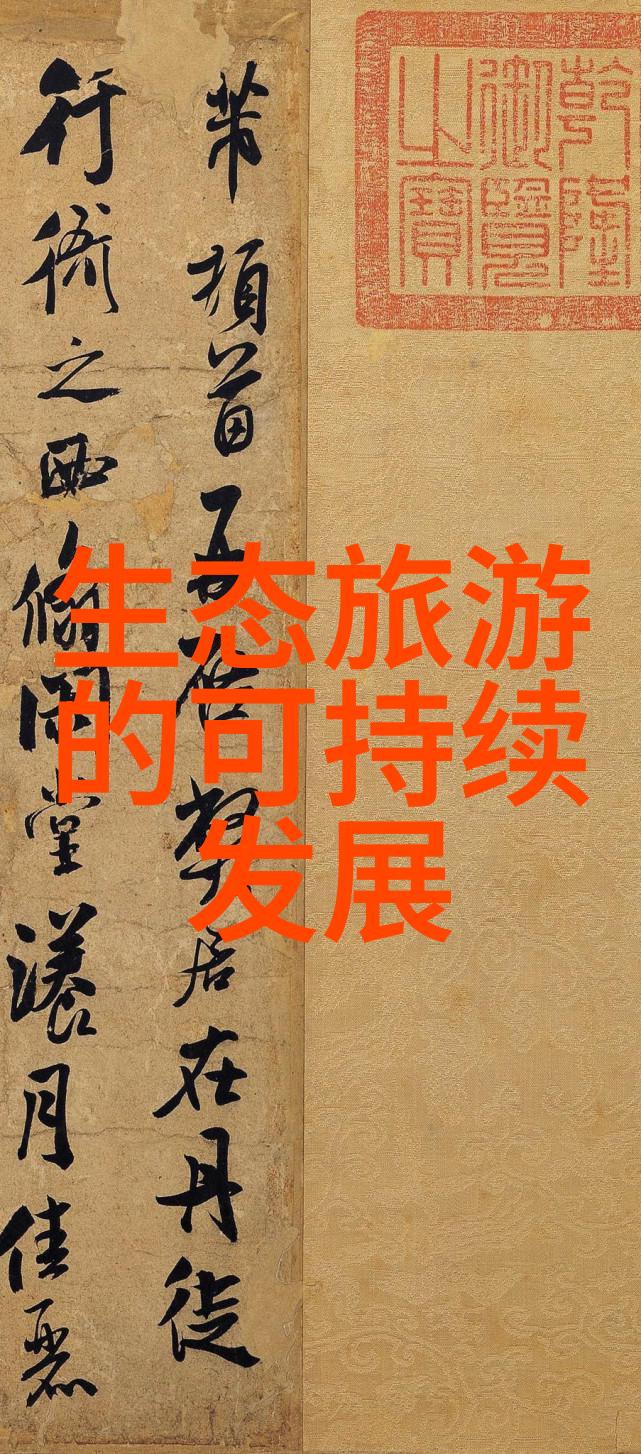 乾隆
御覽
之寶
芾頓首再啓弊居在丹徒
行衙之西翛閑堂漾月佳麗
生态旅游
的可持续
发展